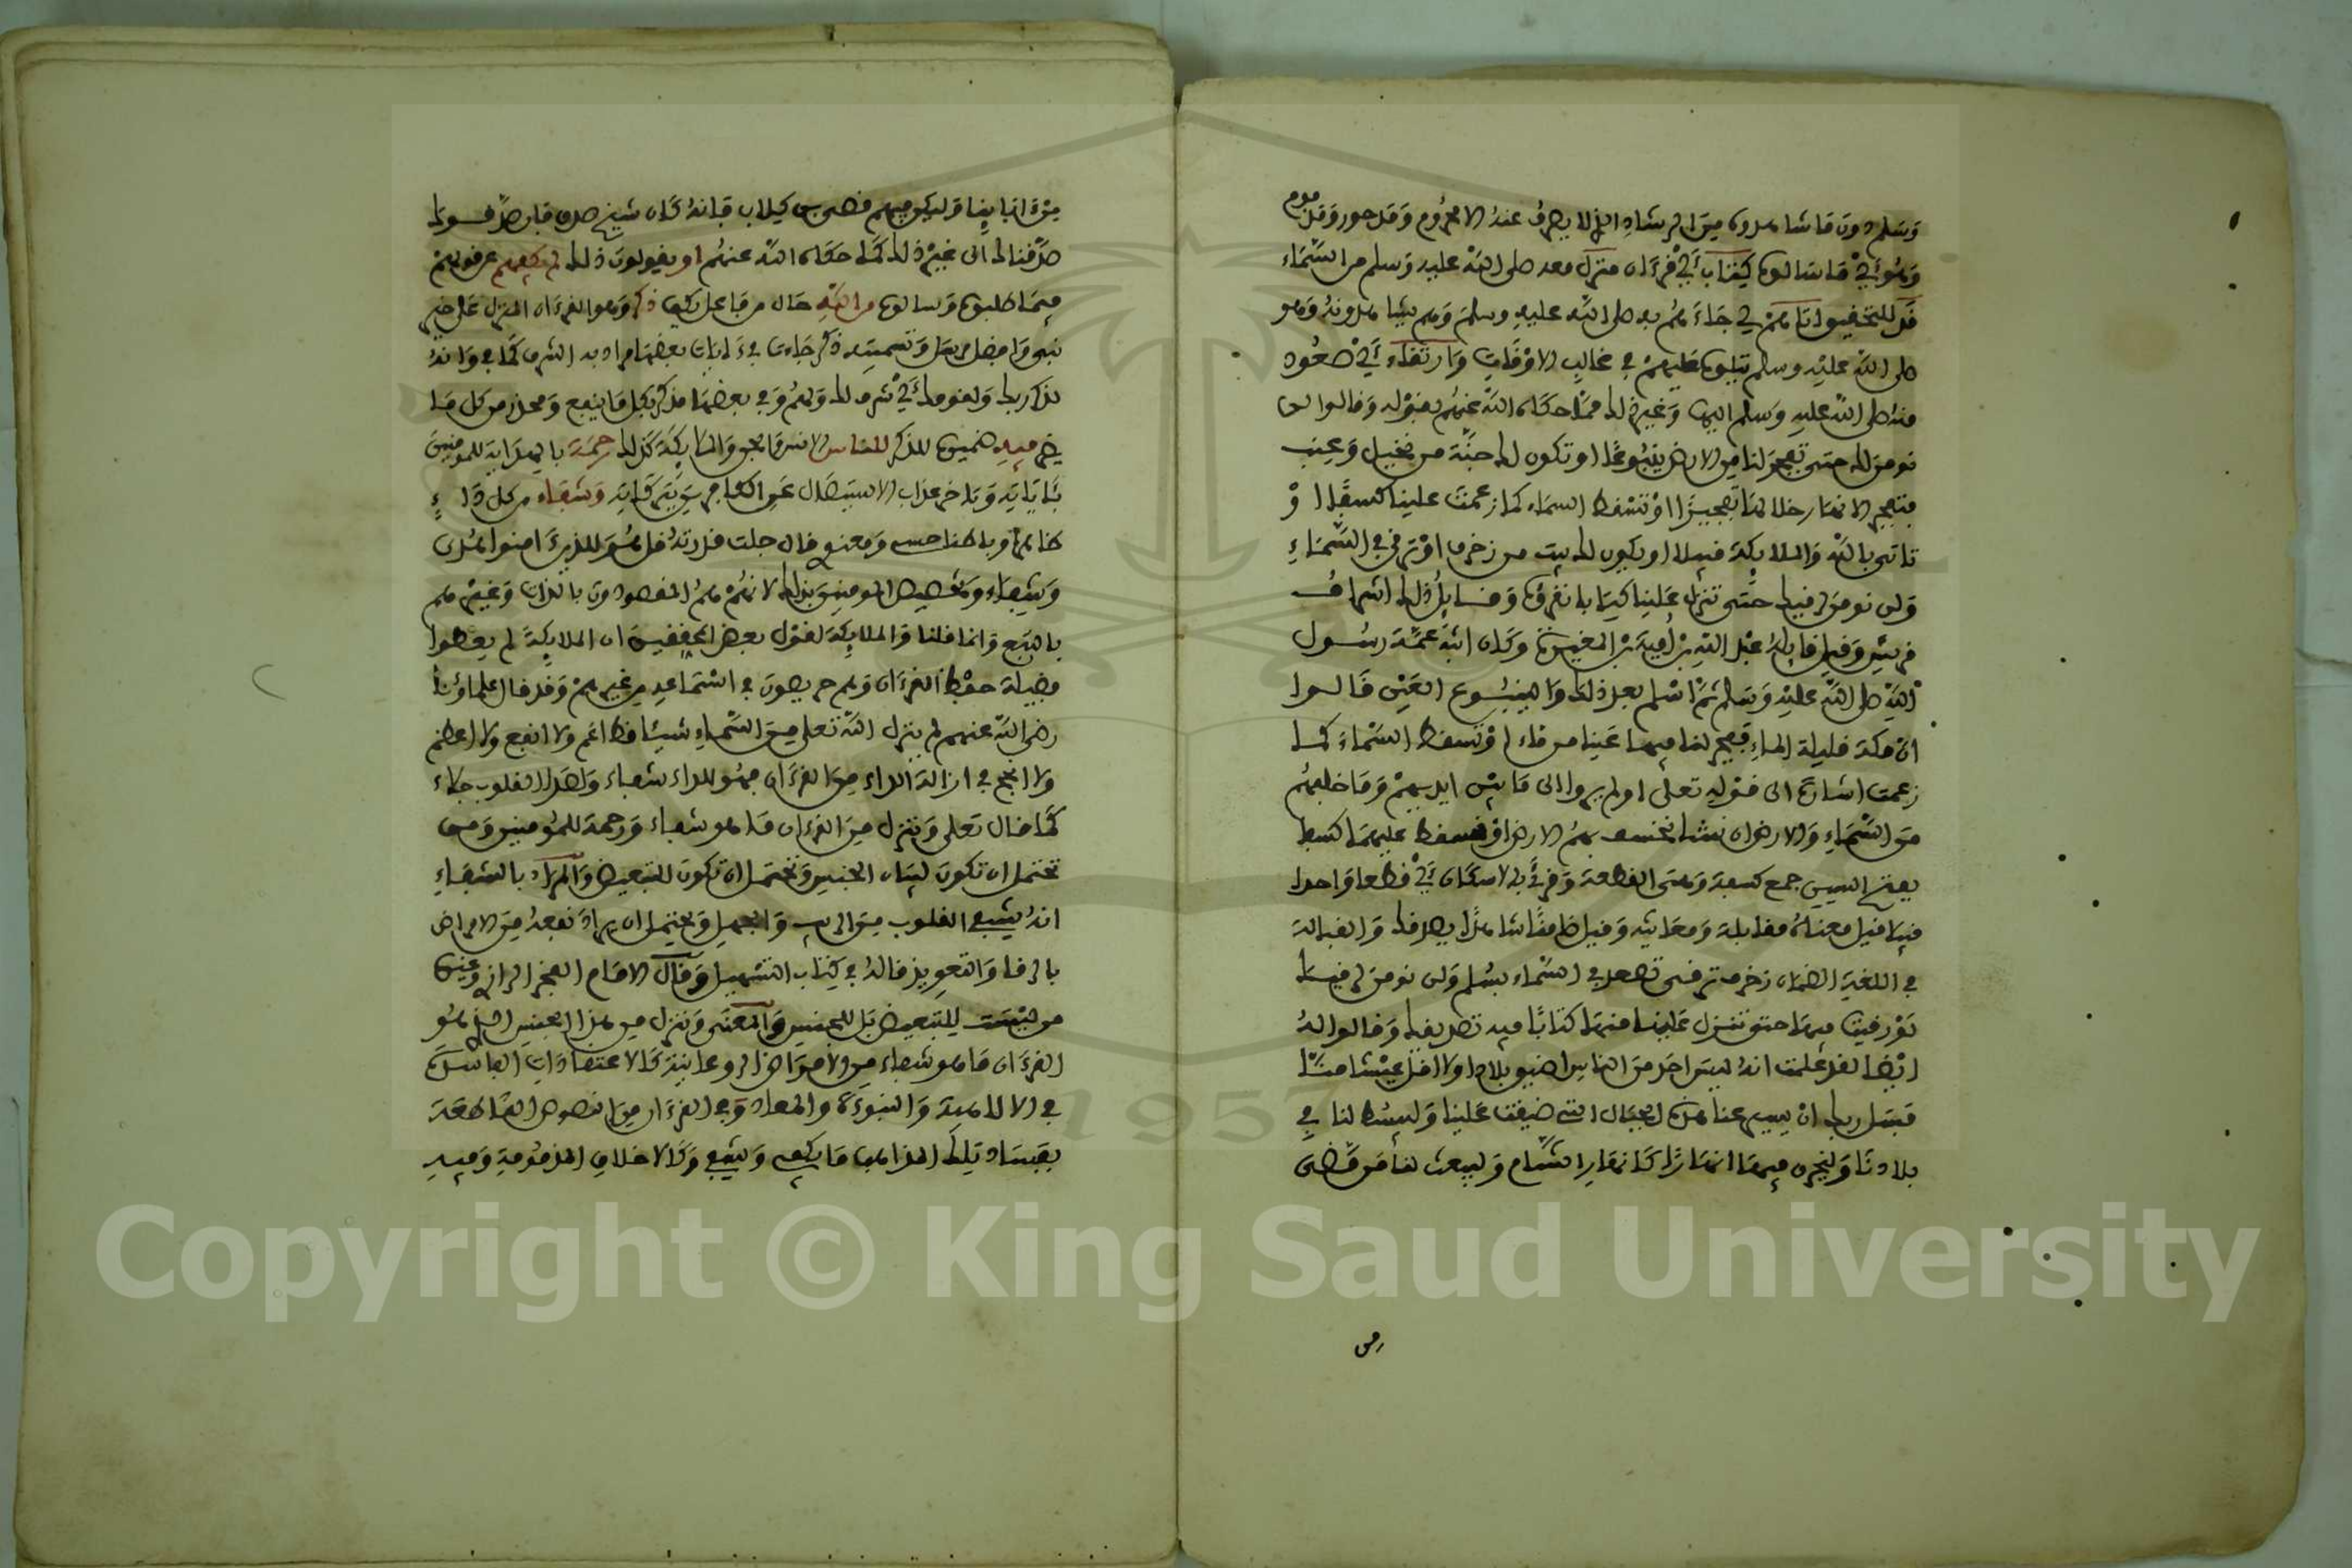 وَسَلم دون ما شاهدوه مِنَ الرشادِ الذي لا يصرفُ عنهُ الا محرُوم وَقد حور وَقد
وَهُو أَيْ مَا سَالوه كِتَاب أَيْ قرءَان منزل معه صلى اللهُ عليه وَسلم من السَّمَاء
قَد للتحقيق اتاهمْ أي جَاءَهُمْ به صلى الله عليهِ وسلمَ وَهم
صلى اللهُ عليْهِ وسلم يتلوه عليهمْ في غالبِ الاوْقَاتِ وَارتقاء أَيْ صعُود
منهُ صلى اللهُ عليهِ وَسلم اليها وَغير ذلك ممَّا حكاه اللهُ عنهُم بقوْله وَقالوا لن
نومنَ لك حتى تفجرَ لنا مِن الارض ينبُوعًا او تكون لك جنَّة من نخيل وَعِنب
فتفجر الانهار خلالهَا تفجيرًا اوْ تسْقط السمَاء كما زعمتَ علينا كسفًا اوْ
تاتي باللهِ وَالملايكة قبيلا او يكون لك بيت من زخرف اوْ ترقى في السَّمَاءِ
وَلن نومنَ لرقيك حتَّى تنزل عَلينا كتابا نقرؤه وَقايلُ ذلك اشرافُ
قريش وَقيل قايلهُ عبْد اللهِ بْن أميَة بْن المغيرة وَكان ابنَ عمَّة رسُول
اللهِ صلى اللهُ عليْهِ وَسلم ثمَّ أسْلم بعد ذلك وَالينبُوع العَيْن قَالوا
انَّ مكة قليلة الماءِ ففجر لنا فيهـا عَينا من مَاء اوْ تسقط السَّمَاءَ كمـا
زعمت اشارة الى قوْلهِ تعلى اولم يروا الى مَا بيْن ايديهمْ وَمَا خلفهُم
منَ السَّمَاءِ وَالارض ان نشا نخسف بهمُ الارض اوْ نسقط عليهمَا كسفا
بفتح السين جمع كسفة وَهى القطعة وَقرئَ بالاسكان أَيْ قطعا وَاحدا
قبيلا قيل معناهُ مقابلة وَمعاينة وَقيل ضامنًا شاهدًا بصدقك وَالقبالة
في اللغة الضمان زخرف ترقى تصعد في السَّماء بسُلم وَلن نومنَ لرقيك
فيهَا حتى تنزل عَلينا منهَا كتابًا فيه تصديقك وَقالوا لهُ
ايْضًا لقد علمت انهُ ليسَ احد منَ الناس اضيق بلادا ولا اقل عيْشا منَّا
فسَل ربك انْ يسير عنا هذه الجبَال التي ضيقت عَلينا وَليبسُط لنا في
بلادنَا وَليجر فيهَا انهَارًا كَانهَارِ الشَّام وَليبعث لنا مَن مَّضى
من
مِنْ ءابايِنا وَليكن فيهم قصي بن كِلاب فانهُ كَان شيخ صدق فان صدَّقـوك
صدَّقناك الى غيْر ذلك كمَا حكاه اللهُ عنهُم او يقولون ذلك لم يكفهم عن قولهمْ
فيمَا طلبوه وَسالوه من اللهِ حَال من فاعل يكف ذكر وَهوَ القرءَان المنزل عَلى خير
نبي وَافضل مرسَل وَتسميته ذكر جَاءت في ءَايات بعضهَا مراد به الشرف كمَا في وَانهُ
لذكر لك وَلقومك أَيْ شرف لك وَلهمُ وَفي بعضهَا مذكر بكل مَا ينفع وَمحذر من كل مَا
يضر فيهِ ضميره للذكر للنـاس الانس وَالجن وَالملايكة كذلك رحمَة بالهدَاية للمومنينَ
وَتاخير عذاب الاستيصَال عَن الكفار وَشفاء من كل دَاءٍ
ظاهرًا وباطنا حسي وَمعنوي قال جلت قدرتهُ قل هُوَ للذين ءامنوا هُدى
وَشِفاء وَتخصيص المومنينَ بذلك لانهُمْ همُ المقصودون بالذات وَغيرهم
بالتبع وَانما قلنا وَالملايكة لقوْل بعض المحققينَ ان الملايكةَ لم يعطوا
فضيلة حفْظ القرءَان وَهم حريصونَ في اسْتمَاعه من غيرهمْ وَقد قال علماؤنَا
رضي اللهُ عنهم لم ينزل اللهُ تعلى منَ السَّماءِ شيئا قط اعَم ولا انفع ولا اعظم
وَلا انجح في ازالة الداء منَ القرءَان فهُو للداء شفاء وَلصدإ القلوب جلاء
كمَا قال تعلى وَننزل منَ القرءَان مَا هو شفاء وَرحمة للمُومنين وَمن
تحتمل ان تكونَ لبيَان الجنس وَتحتمل ان تكونَ للتبعيض وَالمراد بالشفاءِ
انهُ يشفي القلوب منَ الريب وَالجهل وَيحتمل ان يرادَ نفعهُ منَ الامراض
بالرقا وَالتعويذ قالهُ في كِتاب التسْهيل وَقَال الامَام الفخر الرازي وَغيره
من ليْست للتبعيض بَل للجنس وَالمعنى وَننزل من هذا الجنس الذي هُو
القرءَان مَا هو شفاء منَ الامرَاض الروحانية كَالاعتقادَات الفاسدَة
في الالاهية وَالنبوءَة والمعاد وَفي القرءَان منَ النصوص القَاطعة
بفسَاد تِلك المذاهب مَا يكفي وَيشفي وَكَالاخلاق المذمُومة وَفيهِ